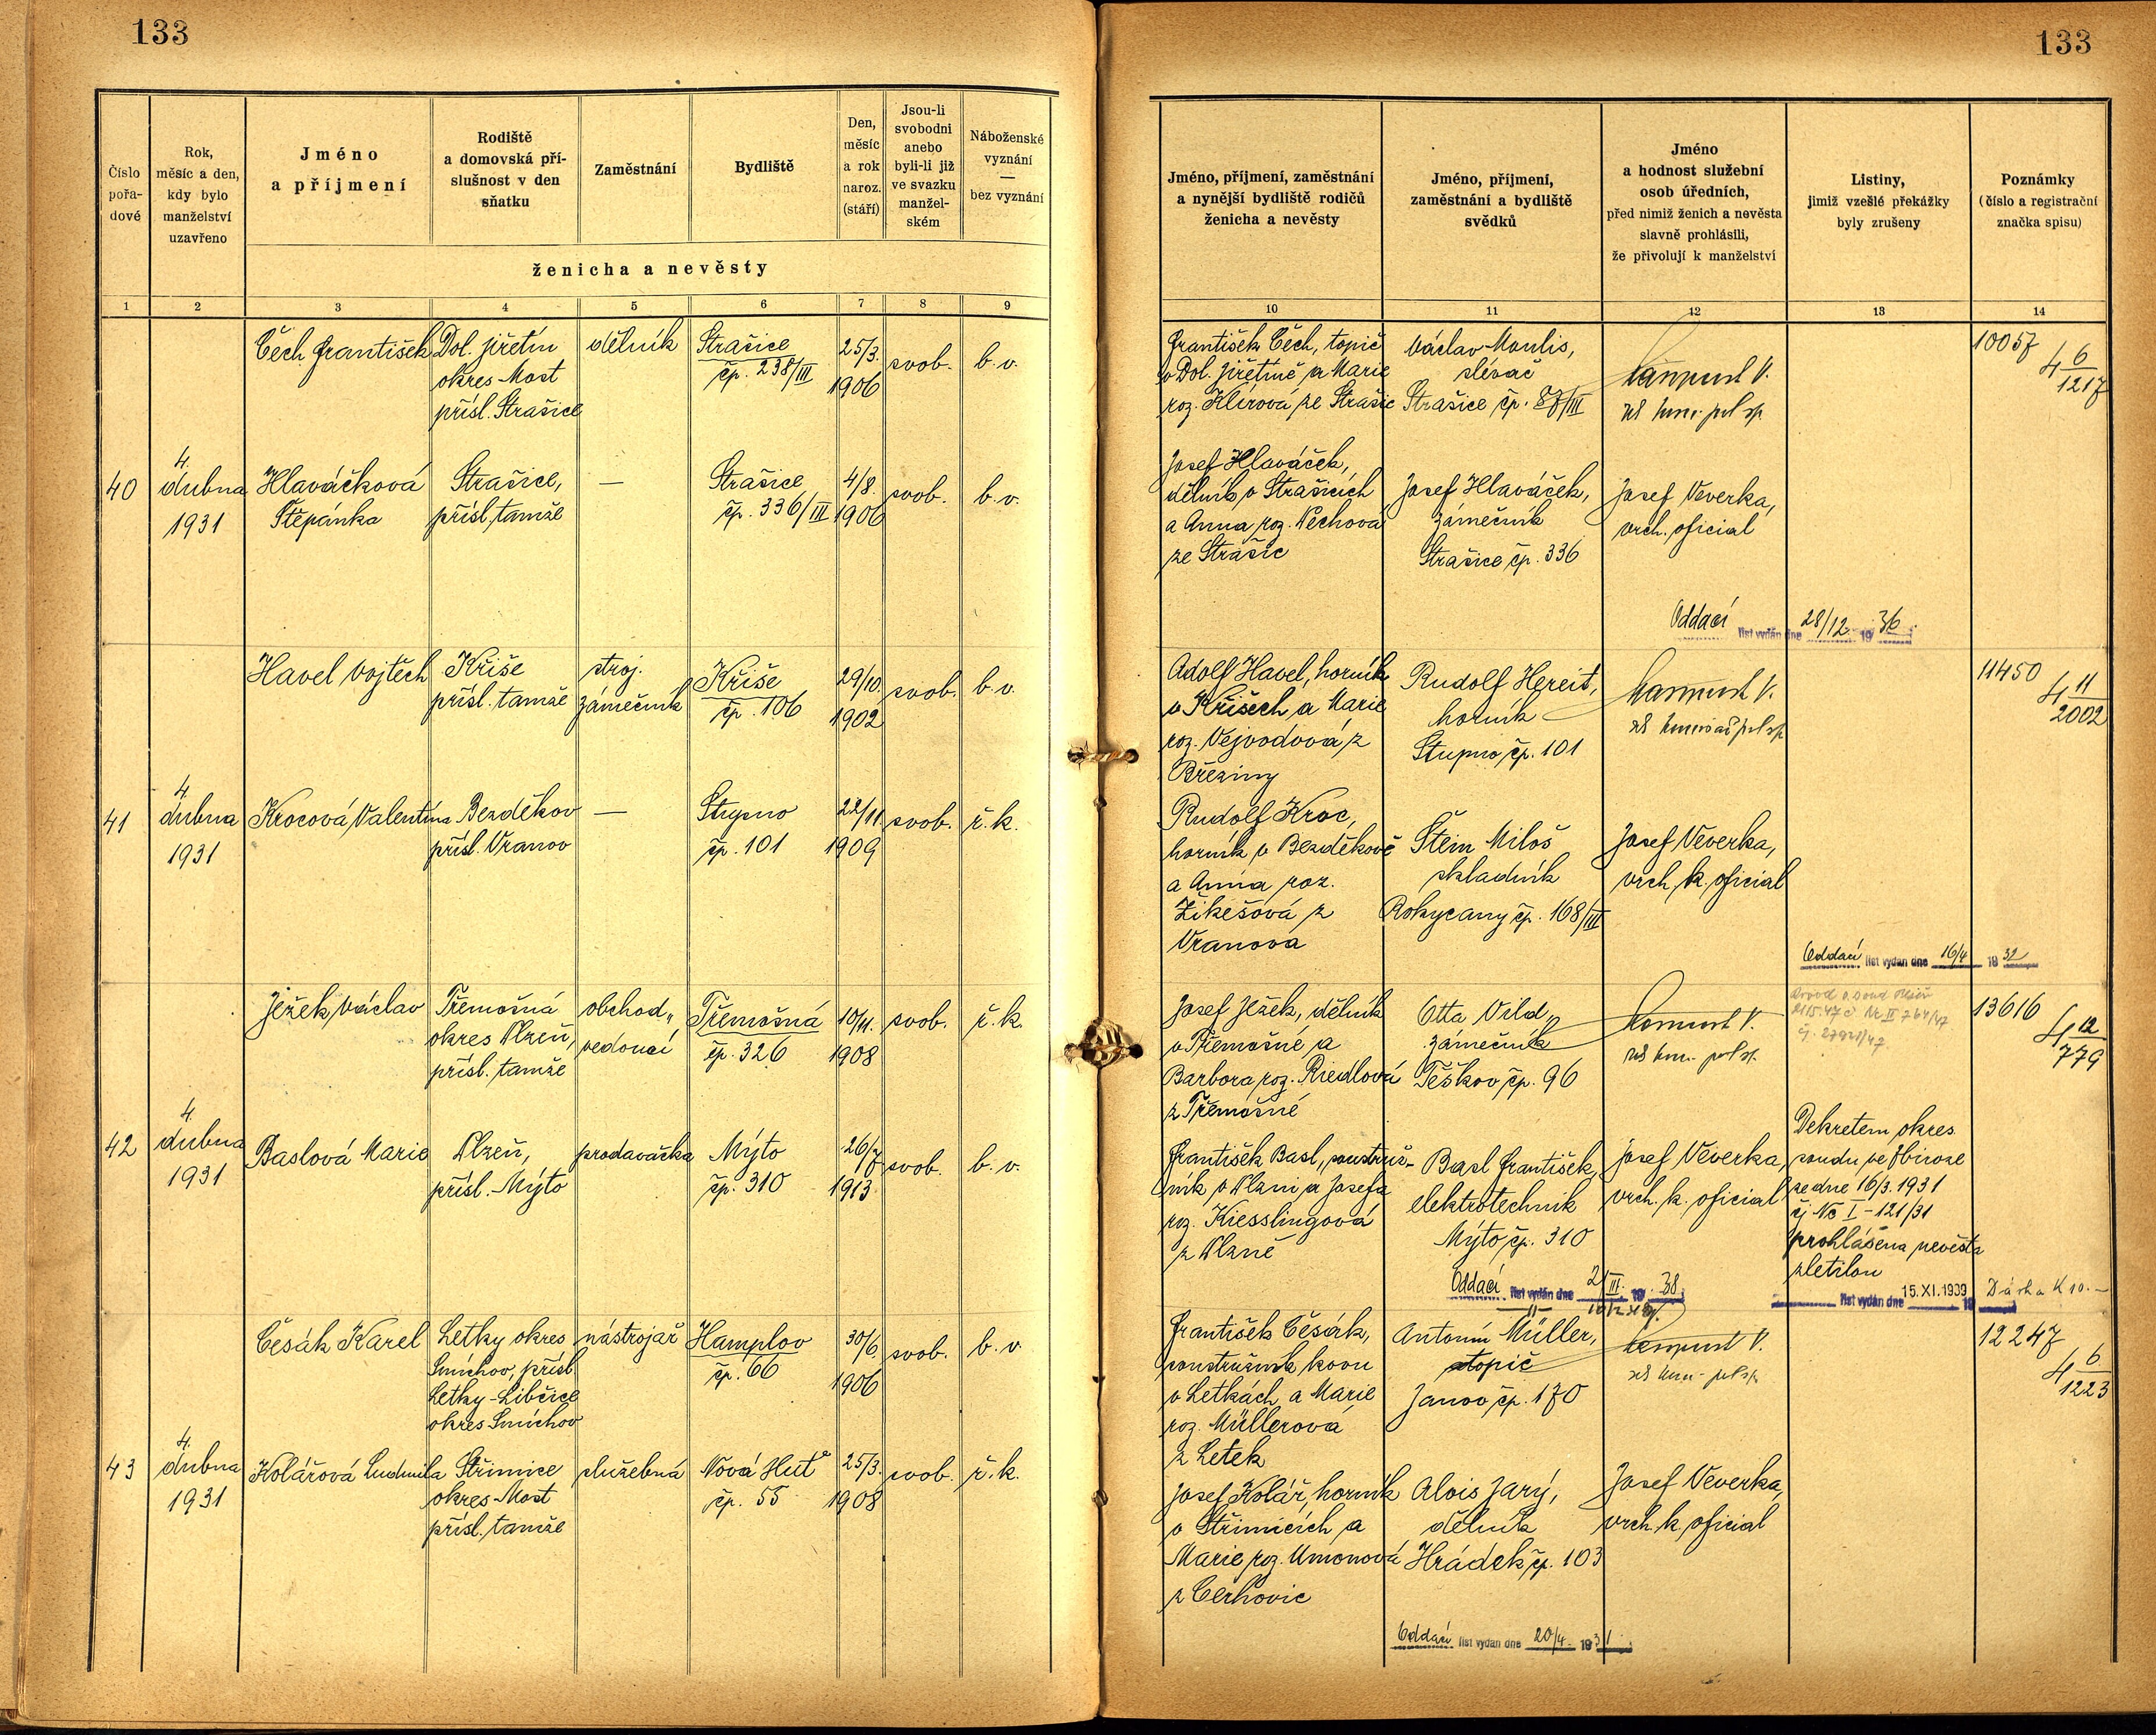 133
133
Číslo pořa-dové
Rok, měsíc a den, kdy bylo manželství uzavřeno
Jméno a příjmení
Rodiště a domovská pří-slušnost v den sňatku
Zaměstnání
Bydliště
Den, měsíc a rok naroz. (stáří)
Jsou-li svobodni anebo byli-li již ve svazku manžel-ském
Náboženské vyznání — bez vyznání
ženicha a nevěsty
Jméno, příjmení, zaměstnání a nynější bydliště rodičů ženicha a nevěsty
Jméno, příjmení, zaměstnání a bydliště svědků
Jméno a hodnost služební osob úředních, před nimiž ženich a nevěsta slavně prohlásili, že přivolují k manželství
Listiny, jimiž vzešlé překážky byly zrušeny
Poznámky (číslo a registrační značka spisu)
1 2 3 4 5 6 7 8 9
10 11 12 13 14
Čech František
Dol. Jiřetín
okres Most
přísl. Strašice
dělník
Strašice
čp. 238/III
25/3.
1906
svob.
b. v.
František Čech, topič
v Dol. Jiřetíně a Marie
roz. Klírová ze Strašic
Václav Moulis,
slévač
Strašice čp. 87/III
10057
4 6/1217
40
4.
dubna
1931
Hlaváčková
Štěpánka
Strašice,
přísl. tamže
—
Strašice
čp. 336/III
4/8.
1906
svob.
b. v.
Josef Hlaváček,
dělník v Strašicích
a Anna roz. Pechová
ze Strašic
Josef Hlaváček,
zámečník
Strašice čp. 336
Josef Veverka,
vrch. oficial
Oddací list vydán dne 28/12. 1936.
Havel Vojtěch
Kříše
přísl. tamže
stroj.
zámečník
Kříše
čp. 106
29/10.
1902
svob.
b. v.
Adolf Havel, horník
v Kříšech a Marie
roz. Vejvodová z
Březiny
Rudolf Hereit,
horník
Stupno čp. 101
11450
4 11/2002
41
4.
dubna
1931
Krocová Valentina
Bezděkov
přísl. Vranov
—
Stupno
čp. 101
22/11.
1909
svob.
ř. k.
Rudolf Kroc,
horník v Bezděkově
a Anna roz.
Žikešová z
Vranova
Štein Miloš
skladník
Rokycany čp. 168/III
Josef Veverka,
vrch. k. oficial
Oddací list vydán dne 16/4 1932
Ježek Václav
Třemošná
okres Plzeň,
přísl. tamže
obchod.
vedoucí
Třemošná
čp. 326
10/11.
1908
svob.
ř. k.
Josef Ježek, dělník
v Třemošné a
Barbora roz. Riedlová
z Třemošné
Otta Vild,
zámečník
Těškov čp. 96
13616
4 12/779
42
4.
dubna
1931
Baslová Marie
Plzeň,
přísl. Mýto
prodavačka
Mýto
čp. 310
26/7
1913
svob.
b. v.
František Basl, soustruž-
ník v Plzni a Josefa
roz. Kiesslingová
z Plzně
Basl František,
elektrotechnik
Mýto čp. 310
Josef Veverka,
vrch. k. oficial
Dekretem okres.
soudu ve Zbiroze
ze dne 16/3. 1931
čj Nc I - 121/31
prohlášena nevěsta
zletilou
Oddací list vydán dne 2/III. 1938.
list vydán dne 15. XI. 1939 Dávka K 10.-
Česák Karel
Letky okres
Smíchov, přísl.
Letky-Libčice
okres Smíchov
nástrojař
Hamplov
čp. 66
30/6.
1906
svob.
b. v.
František Česák,
soustružník kovu
v Letkách a Marie
roz. Müllerová
z Letek
Antonín Müller,
topič
Janov čp. 170
12247
4 6/1223
43
4.
dubna
1931
Kolářová Ludmila
Střimice
okres Most
přísl. tamže
služebná
Nová Huť
čp. 55
25/3.
1908
svob.
ř. k.
Josef Kolář, horník
v Střimicích a
Marie roz. Umonová
z Cerhovic
Alois Jarý,
dělník
Hrádek čp. 103
Josef Veverka,
vrch. k. oficial
Oddací list vydán dne 20/4. 1931